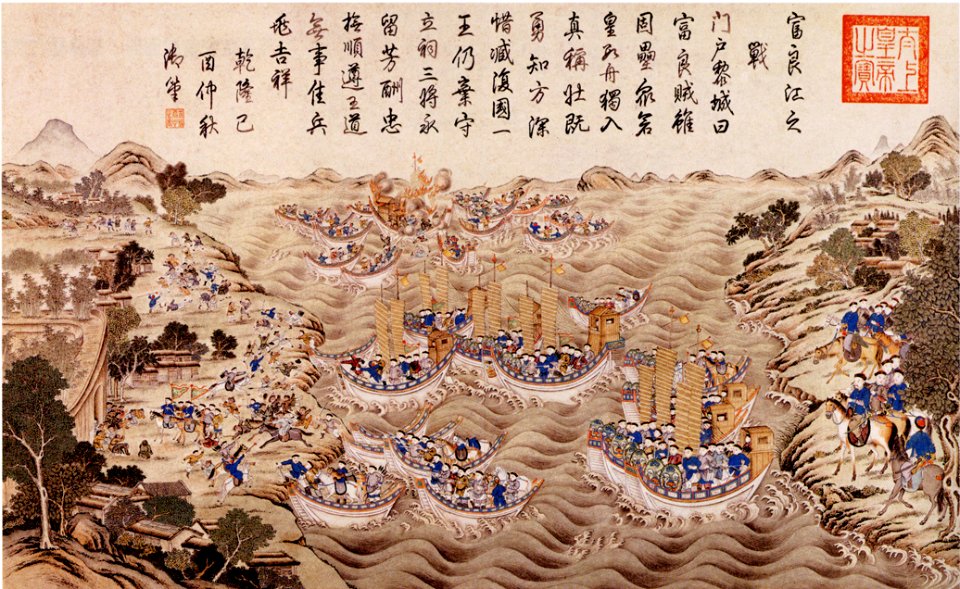 太上
皇帝
之寶
富良江之
戰
门户黎城曰
富良賊雖
固壘眾
舟獨入
真稱壮既
勇知方深
惜 復國一
王仍棄守
立祠三將永
留芳酬忠
撫順遵王道
無事佳兵
兆吉祥
乾隆己
酉仲秋
御筆